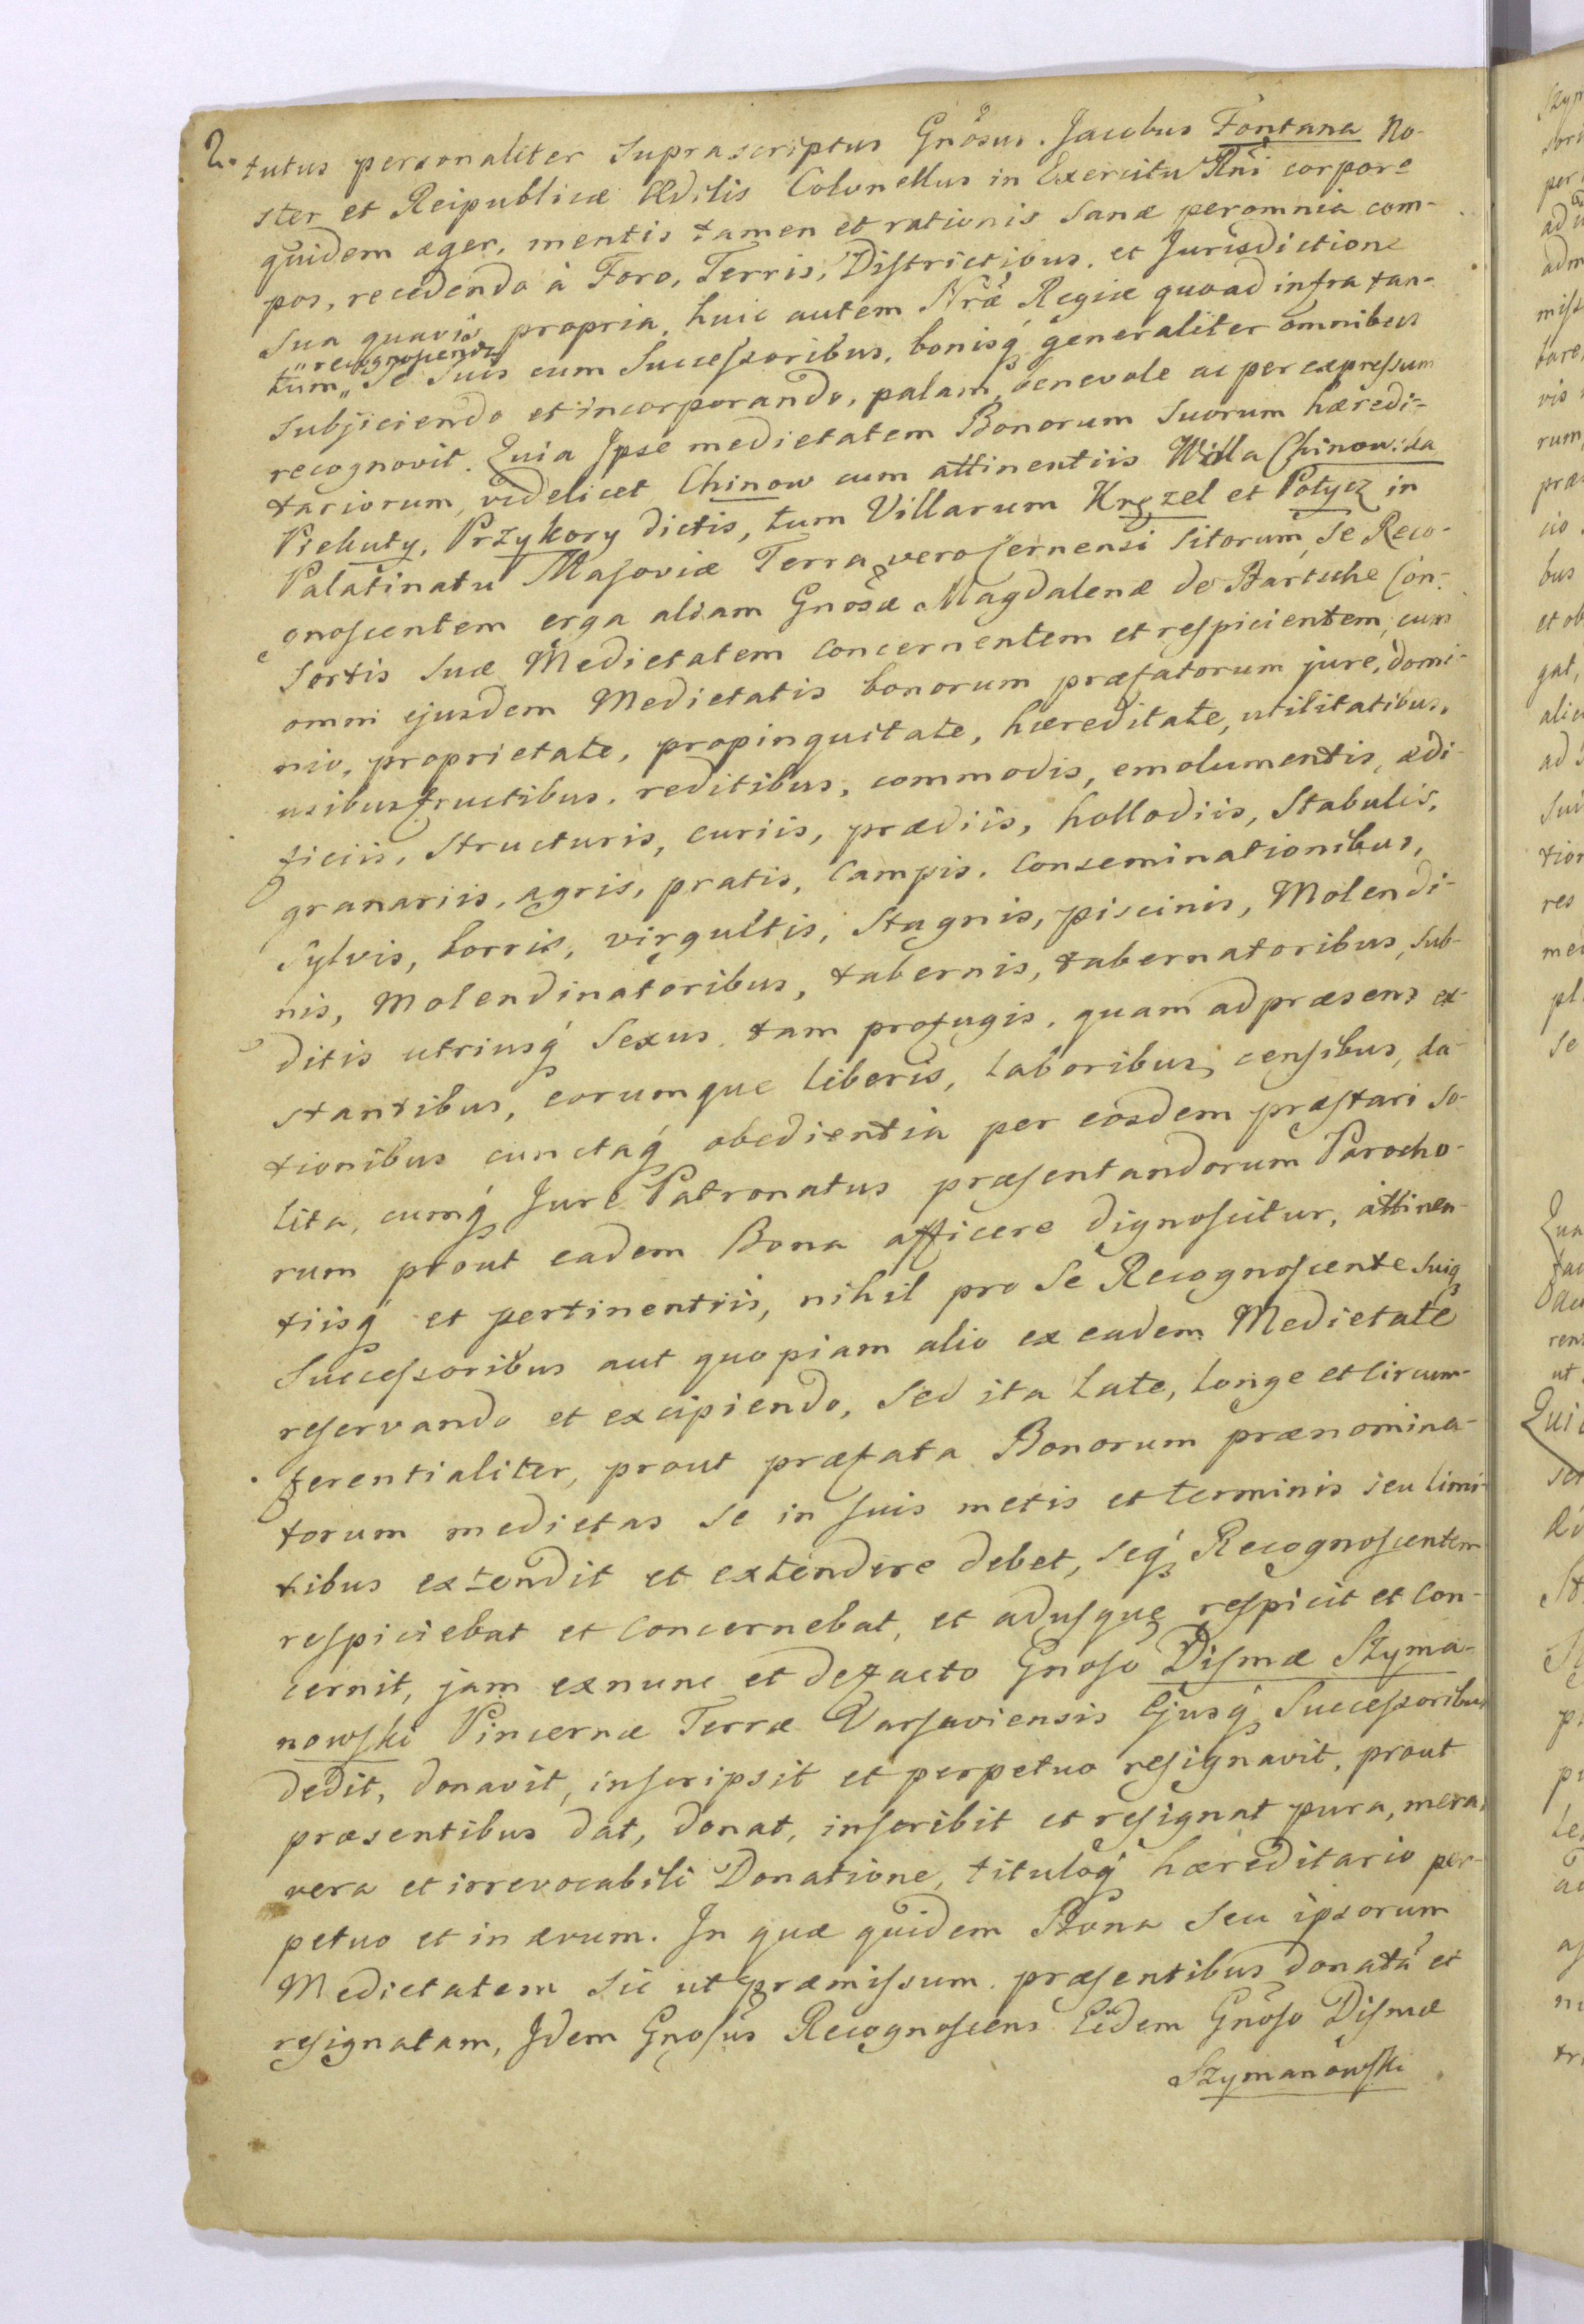 2.
tutus personaliter suprascriptus Gnosus. Jacobus Fontana No-
ster et Reipublicæ Ædilis Colonellus in Exercitu Rni corpore
quidem æger, mentis tamen et rationis sanæ peromnia com-
pos, recedendo à Foro, Terris, Districtibus, et Jurisdictione
sua quavis propria, huic autem Nræ Regiæ quoad infra tan-
„recognoscenda
tum„ se suis cum Successoribus, bonisq generaliter omnibus
subjiciendo et incorporando, palam, benevole ac per expressum
recognovit. Quia Ipse medietatem Bonorum suorum hæredi-
tariorum, videlicet Chinow cum attinentiis Willa Chinowska
Piekuty, Przykory dictis, tum Villarum Kręzel et Potycz in
Palatinatu Masoviæ Terra vero sernensi sitorum, se Reco-
gnoscentem erga aliam Gnosæ Magdalenæ de Bartsche Con-
sortis suæ Medietatem concernentem et respicientem, cum
omni ejusdem Medietatis bonorum præfatorum jure, domi-
nio, proprietate, propinquitate, hæreditate, utilitatibus,
usibusfructibus, reditibus, commodis, emolumentis, ædi-
ficiis, structuris, curiis, prædiis, hollodiis, stabulis,
granariis, agris, pratis, campis, conseminationibus,
sylvis, borris, virgultis, stagnis, piscinis, Molendi-
nis, Molendinatoribus, tabernis, tabernatoribus, sub-
ditis utriusq sexus, tam profugis, quam adpræsens ex-
stantibus, eorumque liberis, laboribus, censibus, da-
tionibus cunctaq obedientia per eosdem præstari so-
lita, cumq Jure Patronatus præsentandorum Parocho-
rum prout eadem Bona afficere dignoscitur, attinen-
tiisq et pertinentiis, nihil pro se Recognoscente suisq
Successoribus aut quopiam alio ex eadem Medietate
reservando et excipiendo, sed ita late, longe et circum-
ferentialiter, prout præfata Bonorum prænomina-
torum medietas se in suis metis et terminis seu limi-
tibus extendit et extendere debet, seq Recognoscentem
respiciebat et concernebat, et adusque respicit et con-
cernit, jam exnunc et defacto Gnoso Dismæ Szyma-
nowski Pincernæ Terræ Varsaviensis Ejusq Successoribus
dedit, donavit, inscripsit et perpetuo resignavit, prout
præsentibus dat, donat, inscribit et resignat pura, mera,
vera et irrevocabili Donatione, tituloq hæreditario per-
petuo et in ævum. In quæ quidem Bona seu ipsorum
Medietatem sic ut præmissum præsentibus donatã et
resignatam, Idem Gnosus Recognoscens Eidem Gnoso Dismæ
Szymanowski